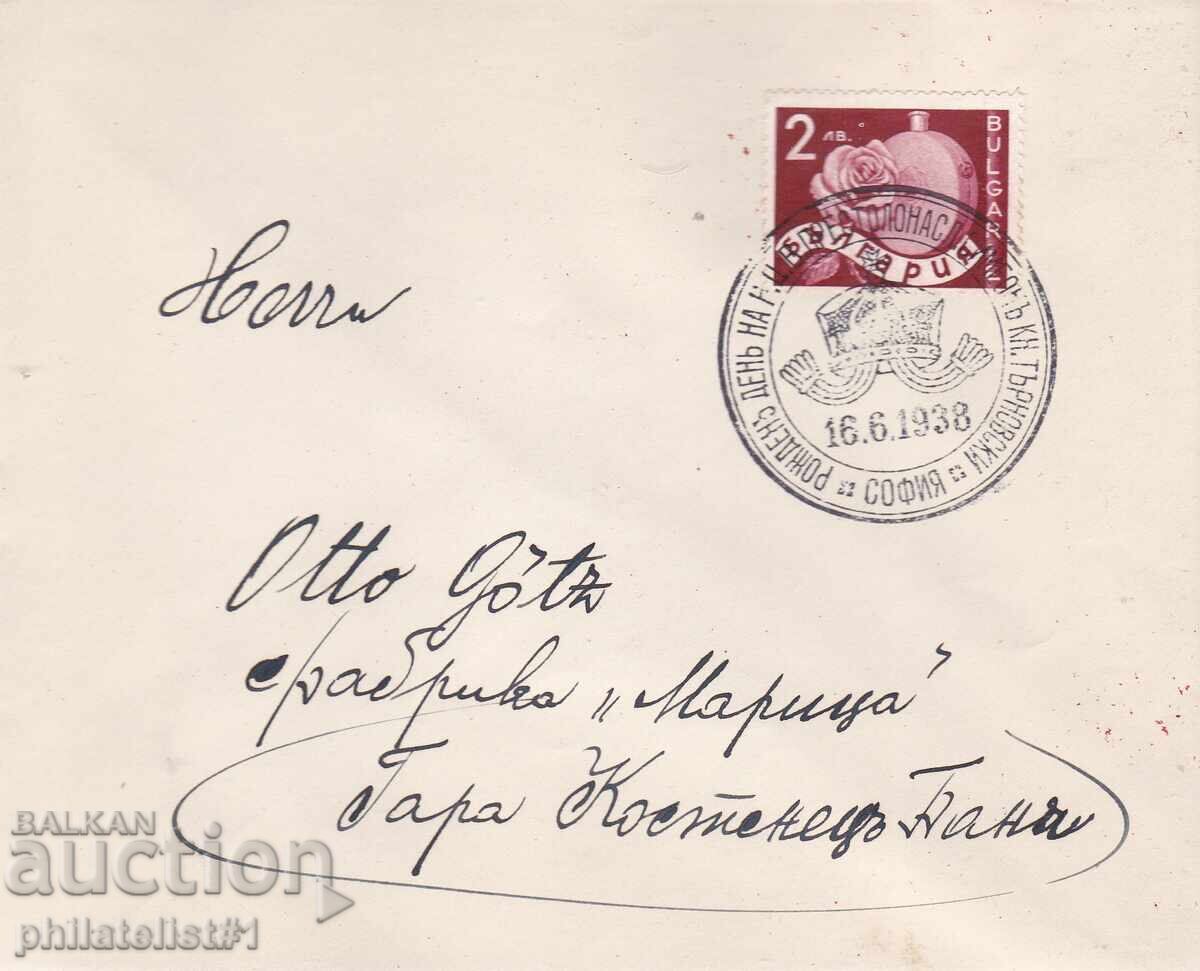 2 лв.
BULGARIA
БЪЛГАРИЯ
РОЖДЕНЪ ДЕНЬ НА Н.Ц.В. ПРЕСТОЛОНАСЛ КН. ТЪРНОВСКИ
16.6.1938
СОФИЯ
Herrn
Otto Götz
фабрика „Марица"
Гара Костенецъ Баня
BALKAN
auction
philatelist#1